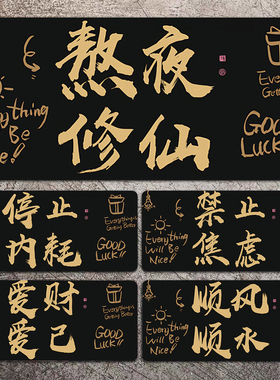 熬夜
修仙
Everything
Will
Be
Nice!
Everything is
Getting Better
GOOD
LUCK!!
停止
内耗
Everything is
Getting Better
GOOD
LUCK!!
禁止
焦虑
Everything
Will Be
Nice!
爱财
爱己
Everything is
Getting Better
GOOD
LUCK!!
顺风
顺水
Everything
Will Be
Nice!